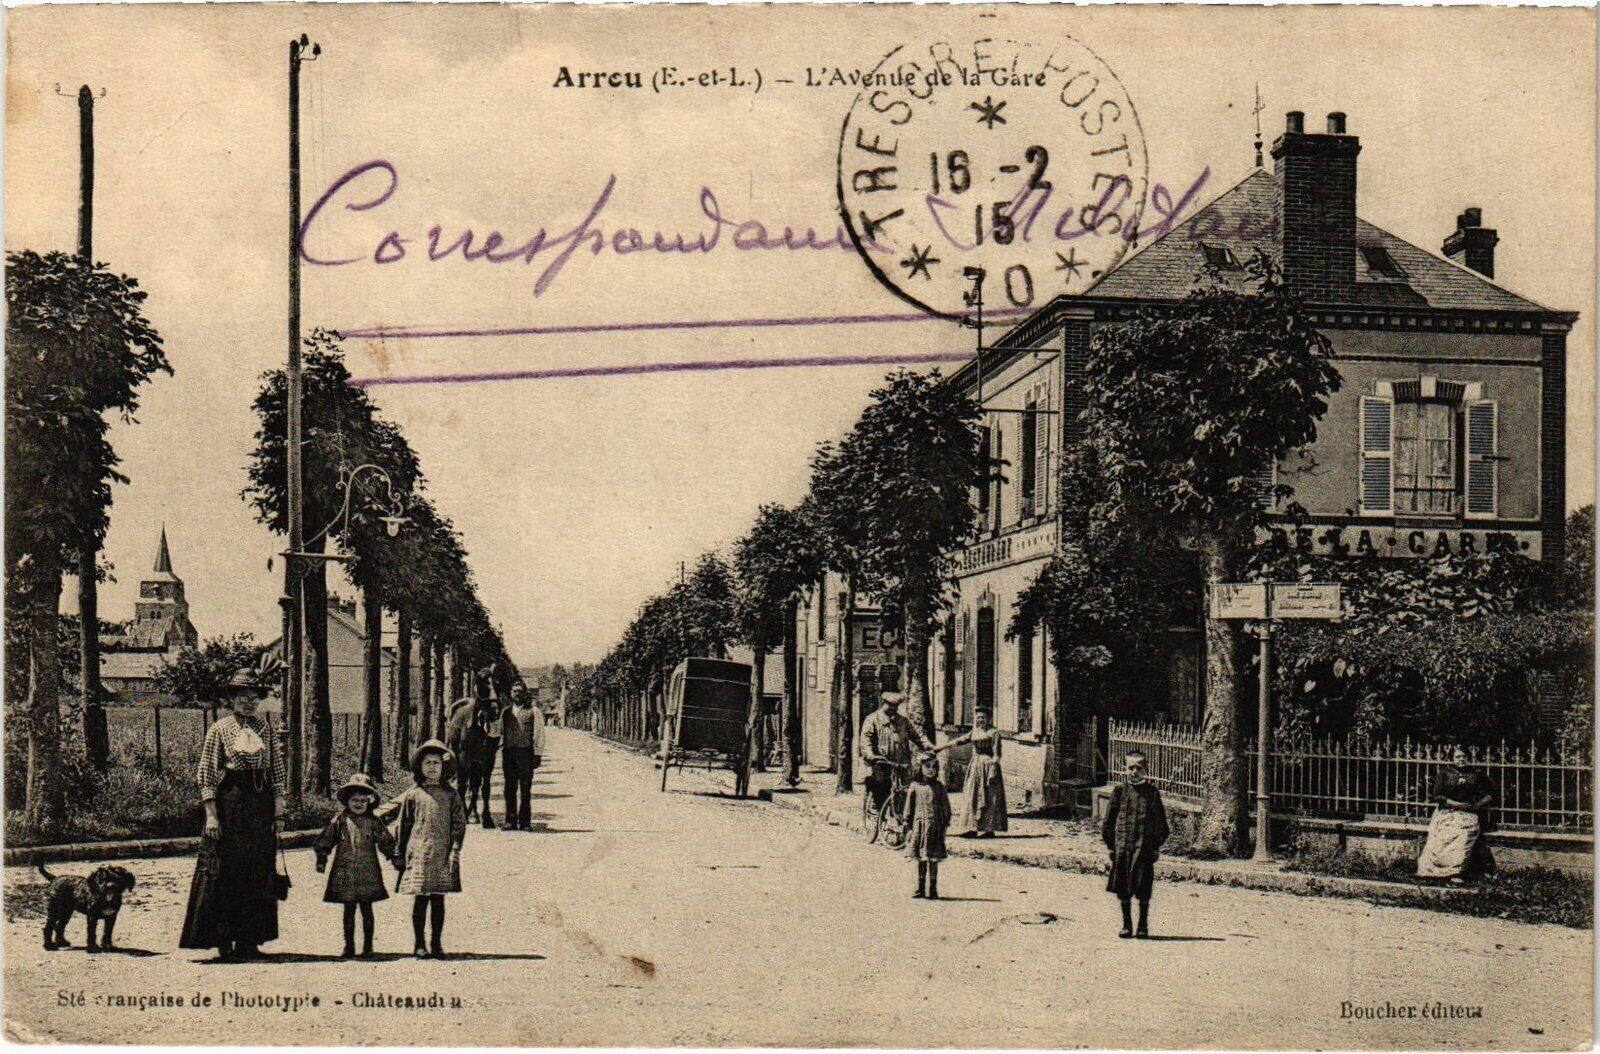 Arrou (E.-et-L.) — L'Avenue de la Gare
TRESOR ET POSTES
16 -2
15
* 70 *
Correspondance Militaire
RESTAURANT
DE · LA · GARE
Sté Française de Phototypie - Châteaudun
Boucher éditeur